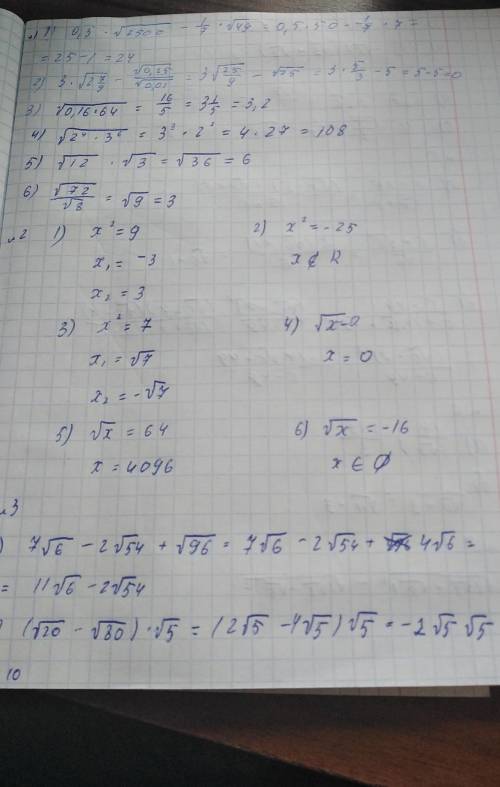 1) 0,5 · √2500 - 1/7 · √49 = 0,5 · 50 - 1/7 · 7 =
= 25 - 1 = 24
2) 3 · √2 7/9 - √0,25/√0,01 = 3√25/9 - √25 = 3 · 5/3 - 5 = 5-5=0
3) √0,16·64 = 16/5 = 3 1/5 = 3,2
4) √2⁴ · 3⁶ = 3³ · 2² = 4 · 27 = 108
5) √12 · √3 = √36 = 6
6) √72/√8 = √9 = 3
№2 1) x² = 9 2) x² = -25
x₁ = -3 x ∉ R
x₂ = 3
3) x² = 7 4) √x = 0
x₁ = √7 x = 0
x₂ = -√7
5) √x = 64 6) √x = -16
x = 4096 x ∈ ∅
№3
) 7√6 - 2√54 + √96 = 7√6 - 2√54 + 4√6 =
= 11√6 - 2√54
) (√20 - √80) · √5 = (2√5 - 4√5) √5 = -2√5 √5
10